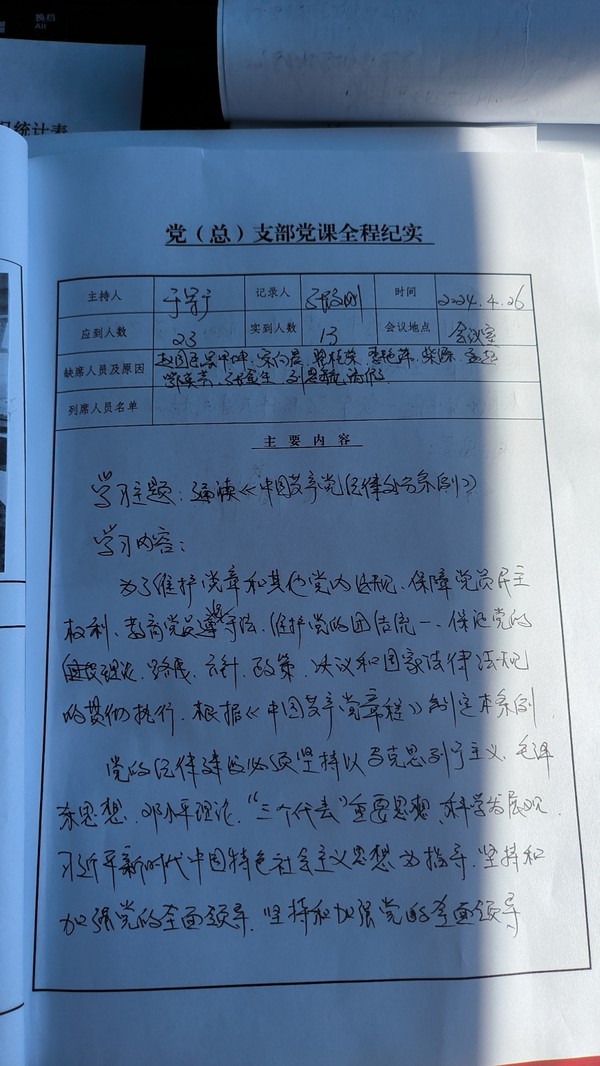 换档
Alt
统计表
党（总）支部党课全程纪实
主持人 记录人 时间 2024.4.26
应到人数 23 实到人数 13 会议地点 会议室
缺席人员及原因
列席人员名单
主要内容
学习主题：通读《中国共产党纪律处分条例》
学习内容：
为了维护党章和其他党内法规、保障党员民主
权利、教育党员遵纪守法、维护党的团结统一、保证党的
理论、路线、方针、政策、决议和国家法律法规
的贯彻执行，根据《中国共产党章程》制定本条例
党的纪律建设必须坚持以马克思列宁主义、毛泽
东思想、邓小平理论、“三个代表”重要思想、科学发展观、
习近平新时代中国特色社会主义思想为指导，坚持和
加强党的全面领导，坚持和加强党的全面领导